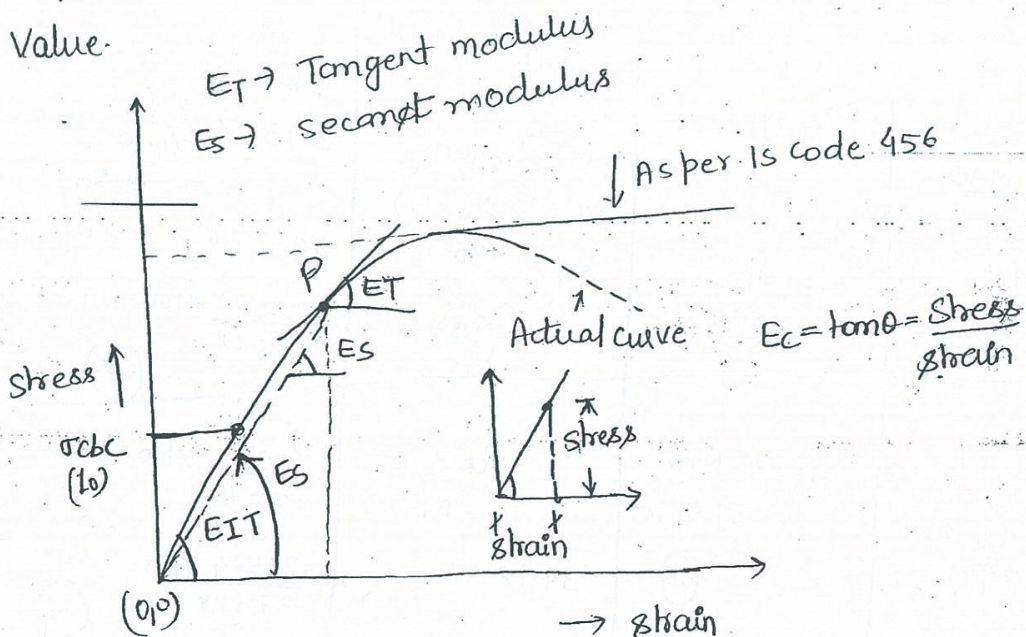 Value.
ET → Tangent modulus
ES → secant modulus
As per IS Code 456
P
ET
ES
Actual curve
Ec = tanθ = Stress / strain
Stress ↑
σcbc
(10)
ES
EIT
stress
strain
(0,0)
→ strain